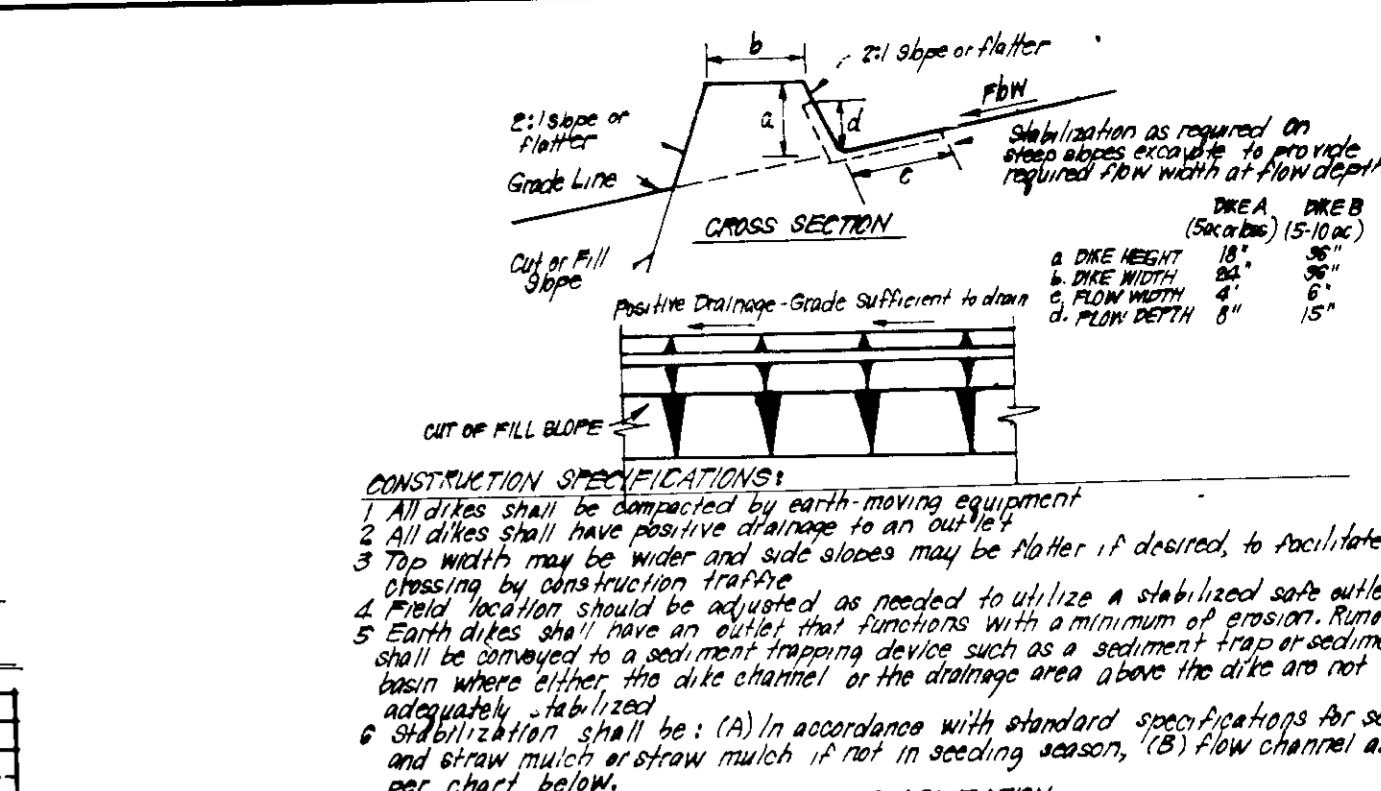 b
2:1 slope or flatter
Flow
2:1 slope or
flatter
a
d
Stabilization as required on
steep slopes excavate to provide
required flow width at flow depth
Grade Line
c
CROSS SECTION
DIKE A DIKE B
(5ac or less) (5-10 ac)
a DIKE HEIGHT 18" 36"
b. DIKE WIDTH 24" 36"
c. FLOW WIDTH 4' 6'
d. FLOW DEPTH 8" 15"
Cut or Fill
Slope
Positive Drainage - Grade Sufficient to drain
CUT OF FILL SLOPE
CONSTRUCTION SPECIFICATIONS:
1 All dikes shall be compacted by earth-moving equipment
2 All dikes shall have positive drainage to an outlet
3 Top width may be wider and side slopes may be flatter if desired, to facilitate
crossing by construction traffic
4 Field location should be adjusted as needed to utilize a stabilized safe outle
5 Earth dikes shall have an outlet that functions with a minimum of erosion. Runo
shall be conveyed to a sediment trapping device such as a sediment trap or sedime
basin where either the dike channel or the drainage area above the dike are not
adequately stabilized
6 Stabilization shall be: (A) In accordance with standard specifications for se
and straw mulch or straw mulch if not in seeding season, (B) flow channel a
per chart below.